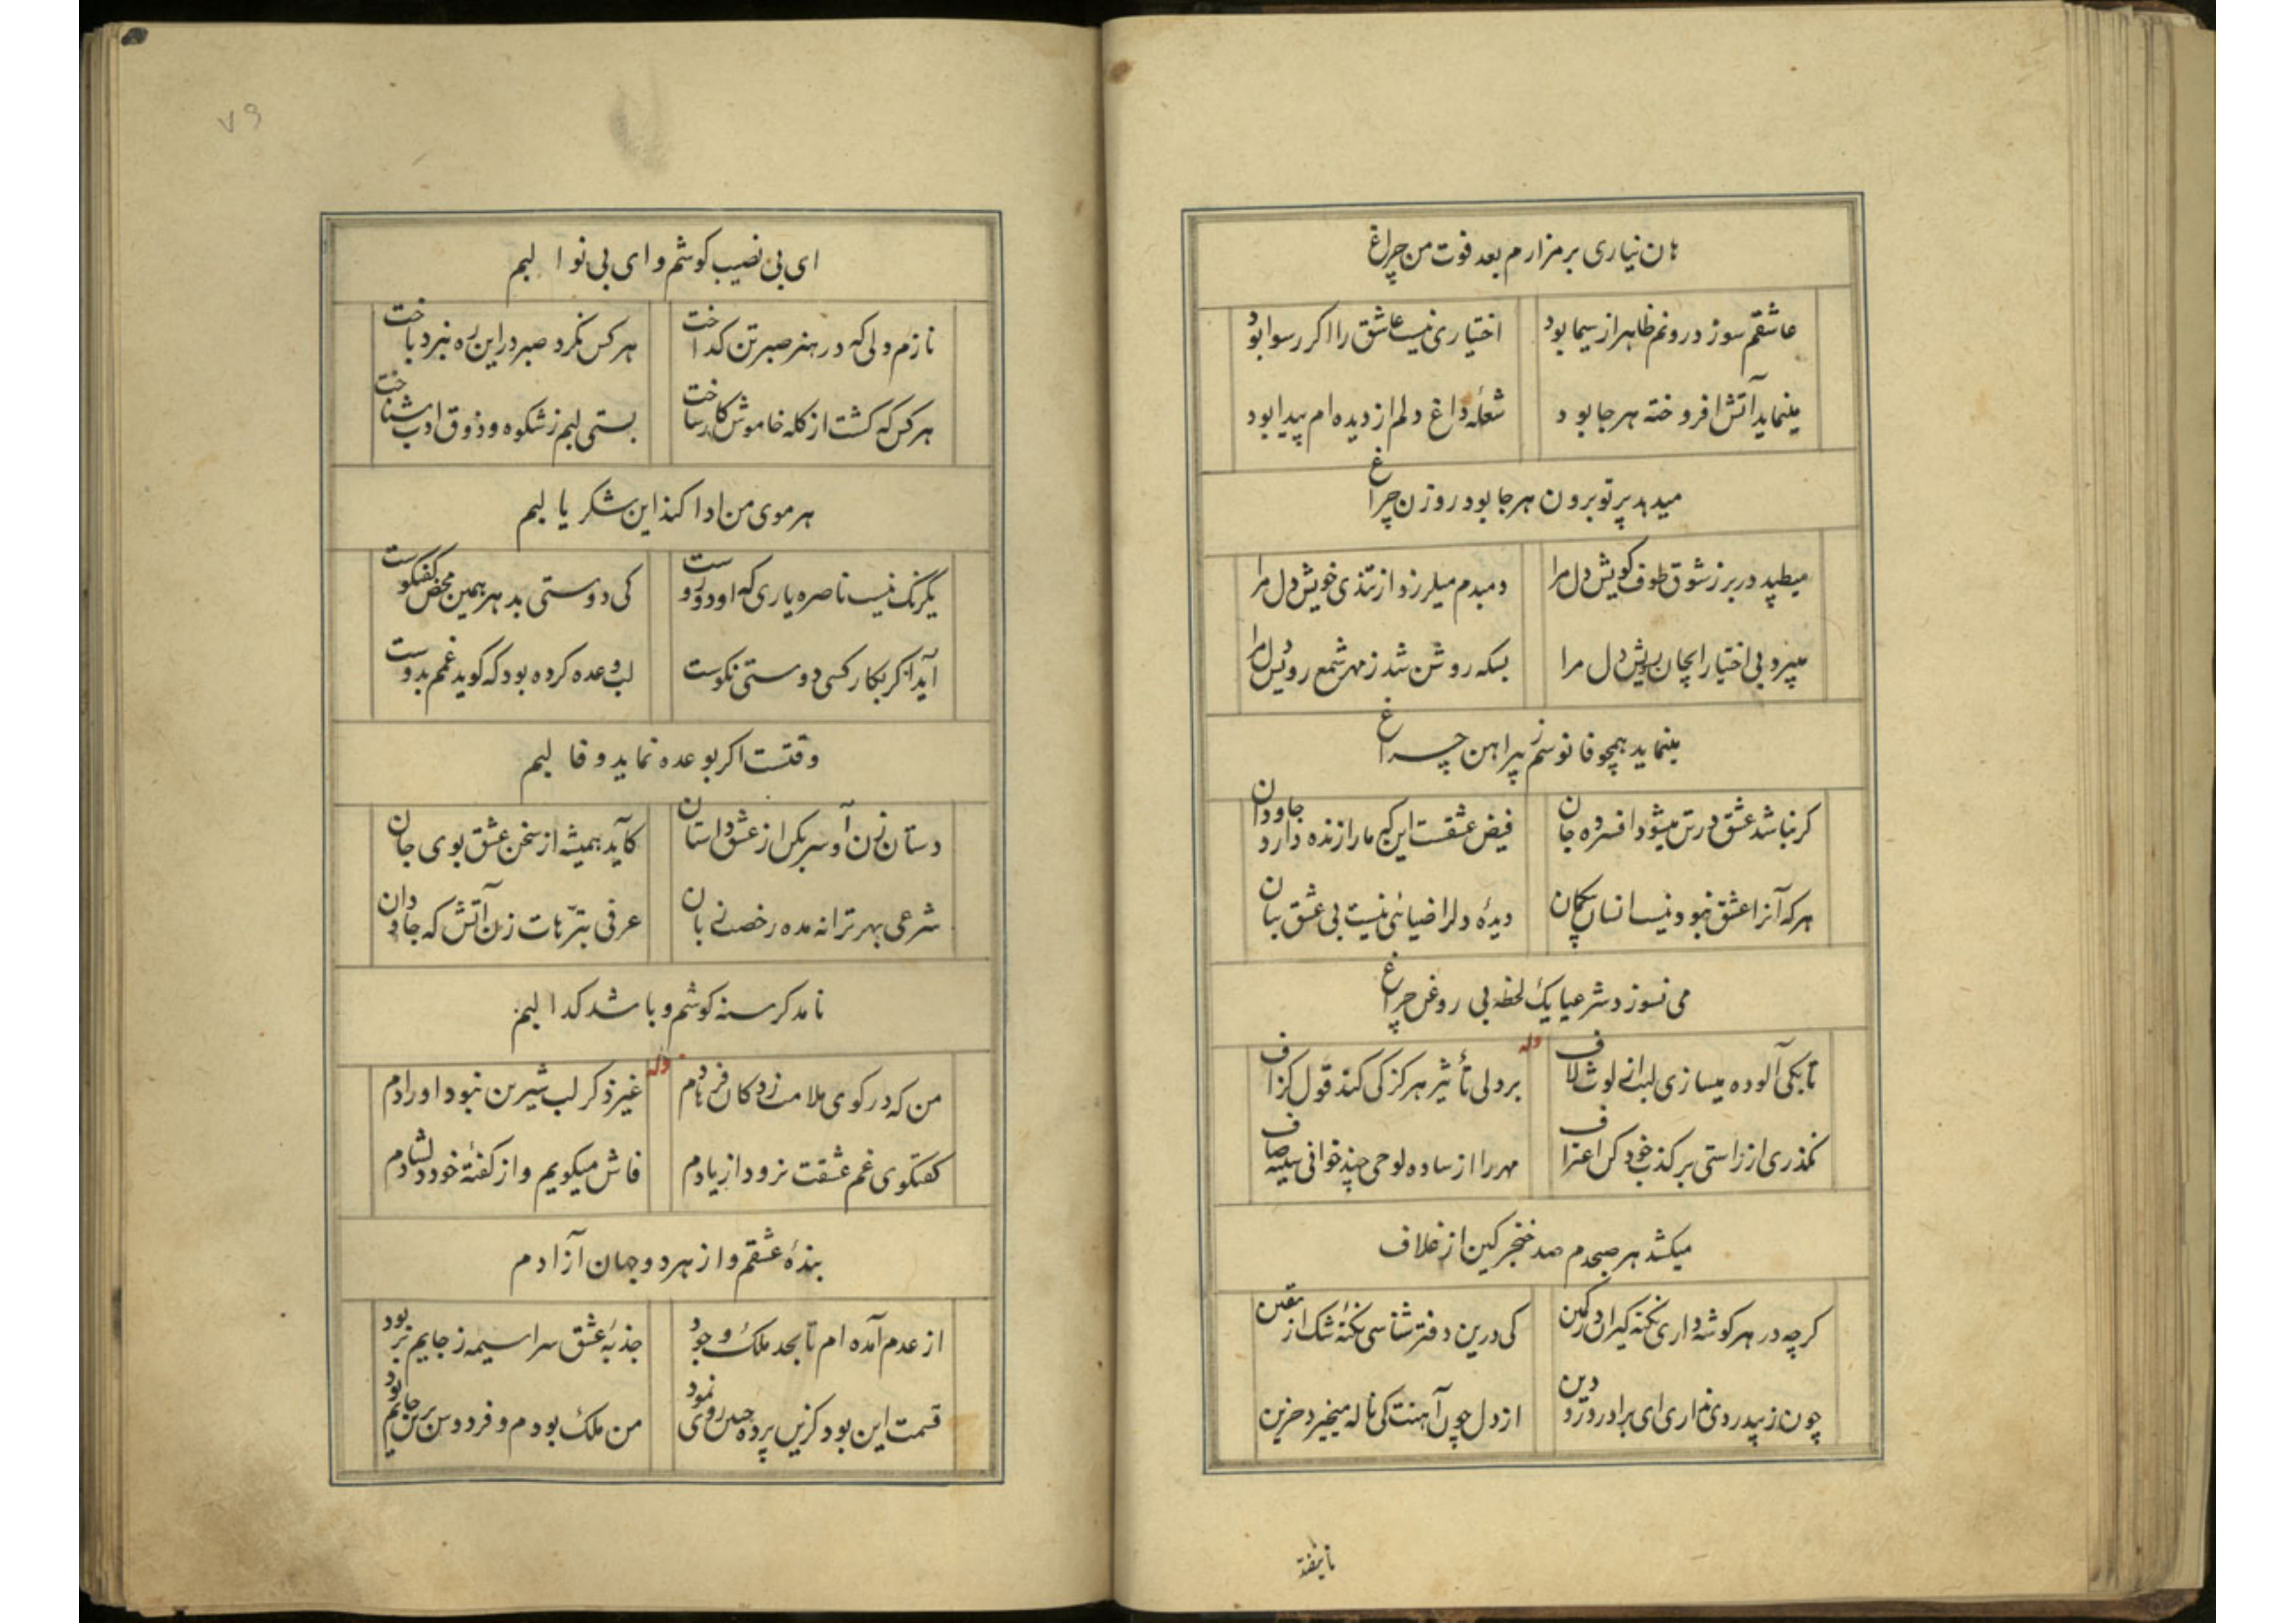 هان نیاری بر مزارم بعد فوت من چراغ
عاشقم سوز درونم ظاهر از سیما بود اختیاری نیست عاشق را اکر رسوا بود
مینماید آتش افروخته هر جا بود شعلهٔ داغ دلم از دیده ام پیدا بود
میدهد پرتو برون هر جا بود روزن چراغ
میطپد در بر ز شوق طوف کویش دل مرا دمبدم میلرزد از تندی خویش دل مرا
میپرد بی اختیار بسویش دل مرا بسکه روشن شد ز مهر شمع رویش دل مرا
مینماید همچو فانوسم ز پیراهن چراغ
کر نباشد عشق در تن میشود افسرده جان فیض عشقست این که ما را زنده دارد جاودان
هر که آنرا عشق نبود نیست انسان دیدهٔ دلرا ضیائی نیست بی عشق بتان
می نسوزد شرعیا یک لحظه بی روغن چراغ
وله
تا بکی آلوده میسازی لب از لوث لاف بر دلی تأثیر هرکز کی کند قول کزاف
نکذری از راستی بر کذب خود کن اعتراف مهر را از ساده لوحی چند خوانی سینه صاف
میکشد هر صبحدم صد خنجر کین از غلاف
کرچه در هر کوشه داری نکته کیران در کمین کی درین دفتر شناسی نکتهٔ شک از یقین
چون ز پی دردی نداری ای برادر درد دین از دل چون آهنت کی ناله میخیزد حزین
تا نیفتد
۷۹
ای بی نصیب کوشم و ای بی نوا لبم
نازم دلی که در هنر صبر تن کداخت هر کس نکرد صبر در این ره نبرد باخت
هر کس که کشت از کله خاموش کار ساخت بستی لبم ز شکوه و ذوق ادب شناخت
هر موی من ادا کند این شکر یا لبم
یکرنک نیست ناصره یاری که او دوروست کی دوستی بد هر همین محض کفتکوست
آید اکر بکار کسی دوستی نکوست لب وعده کرده بود که کوید غمم بدوست
وقتست اکر بوعده نماید وفا لبم
دستان زن آ و سر بکن از عشق داستان کآید همیشه از سخن عشق بوی جان
شرعی بهر ترانه مده رخصت زبان عرفی بترّهات زن آتش که جاودان
نامد کرسنه کوشم و باشد کدا لبم
وله
من که در کوی ملامت زدکان فرهادم غیر ذکر لب شیرین نبود اورادم
کفتکوی غم عشقت نرود از یادم فاش میکویم و از کفتهٔ خود دلشادم
بندهٔ عشقم و از هر دو جهان آزادم
از عدم آمده ام تا بحد ملک وجود جذبهٔ عشق سراسیمه ز جایم بربود
قسمت این بود کزین پرده چنین روی نمود من ملک بودم و فردوس برین جایم بود